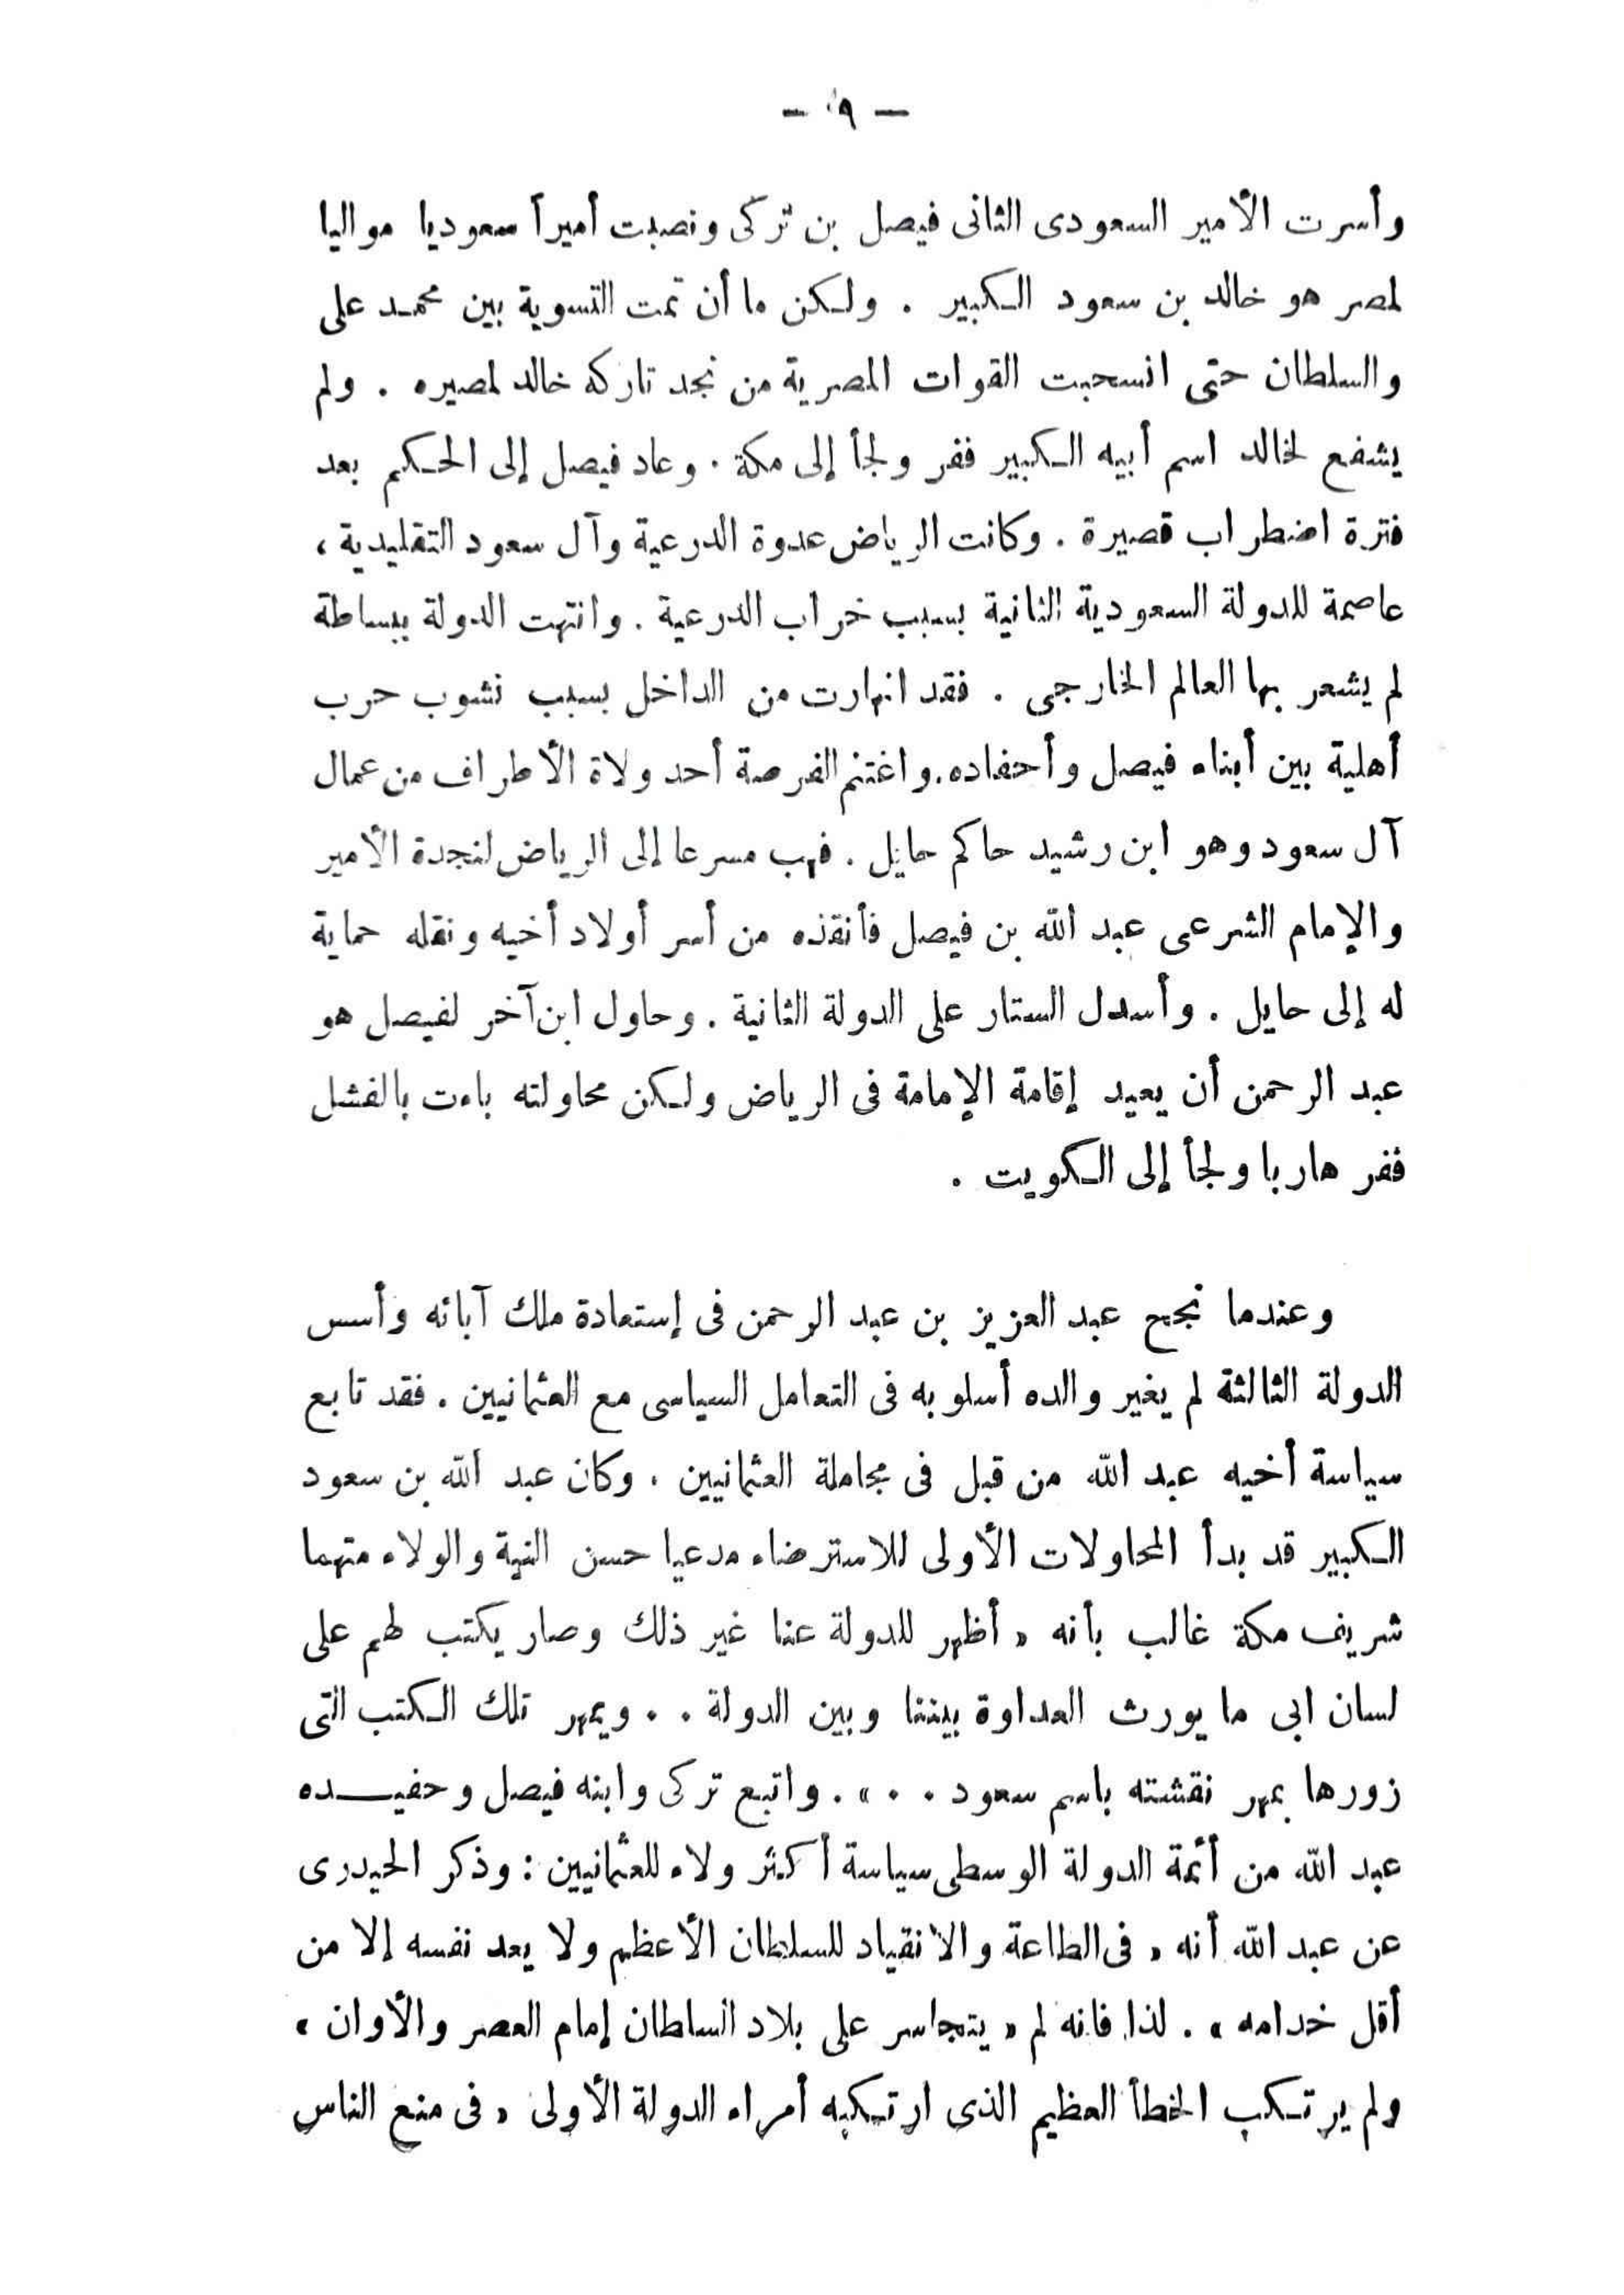 — ٩ —
وأسرت الأمير السعودى الثانى فيصل بن تركى ونصبت أميراً سعوديا مواليا
لمصر هو خالد بن سعود الكبير . ولكن ما أن تمت التسوية بين محمد على
والسلطان حتى انسحبت القوات المصرية من نجد تاركه خالد لمصيره . ولم
يشفع لخالد اسم أبيه الكبير ففر ولجأ إلى مكة . وعاد فيصل إلى الحكم بعد
فترة اضطراب قصيرة . وكانت الرياض عدوة الدرعية وآل سعود التقليدية ،
عاصمة للدولة السعودية الثانية بسبب خراب الدرعية . وانتهت الدولة ببساطة
لم يشعر بها العالم الخارجى . فقد انهارت من الداخل بسبب نشوب حرب
أهلية بين أبناء فيصل وأحفاده . واغتنم الفرصة أحد ولاة الأطراف من عمال
آل سعود وهو ابن رشيد حاكم حايل . فهب مسرعا إلى الرياض لنجدة الأمير
والإمام الشرعى عبد الله بن فيصل فأنقذه من أسر أولاد أخيه ونقله حماية
له إلى حايل . وأسدل الستار على الدولة الثانية . وحاول ابن آخر لفيصل هو
عبد الرحمن أن يعيد إقامة الإمامة فى الرياض ولكن محاولته باءت بالفشل
ففر هاربا ولجأ إلى الكويت .
وعندما نجح عبد العزيز بن عبد الرحمن فى إستعادة ملك آبائه وأسس
الدولة الثالثة لم يغير والده أسلوبه فى التعامل السياسى مع العثمانيين . فقد تابع
سياسة أخيه عبد الله من قبل فى مجاملة العثمانيين . وكان عبد الله بن سعود
الكبير قد بدأ المحاولات الأولى للاسترضاء مدعيا حسن النية والولاء متهما
شريف مكة غالب بأنه « أظهر للدولة عنا غير ذلك وصار يكتب لهم على
لسان ابى ما يورث العداوة بيننا وبين الدولة . . ويمهر تلك الكتب التى
زورها بمهر نقشته باسم سعود . . » . واتبع تركى وابنه فيصل وحفيده
عبد الله من أئمة الدولة الوسطى سياسة أكثر ولاء للعثمانيين : وذكر الحيدرى
عن عبد الله أنه « فى الطاعة والانقياد للسلطان الأعظم ولا يعد نفسه إلا من
أقل خدامه » . لذا فانه لم « يتجاسر على بلاد السلطان إمام العصر والأوان »
ولم يرتكب الخطأ العظيم الذى ارتكبه أمراء الدولة الأولى « فى منع الناس